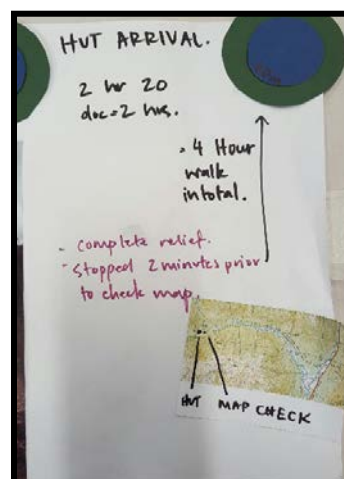 HUT ARRIVAL.
2 hr 20
doc = 2 hrs.
- 4 Hour
walk
in total.
- complete relief.
- stopped 2 minutes prior
to check map.
HUT MAP CHECK